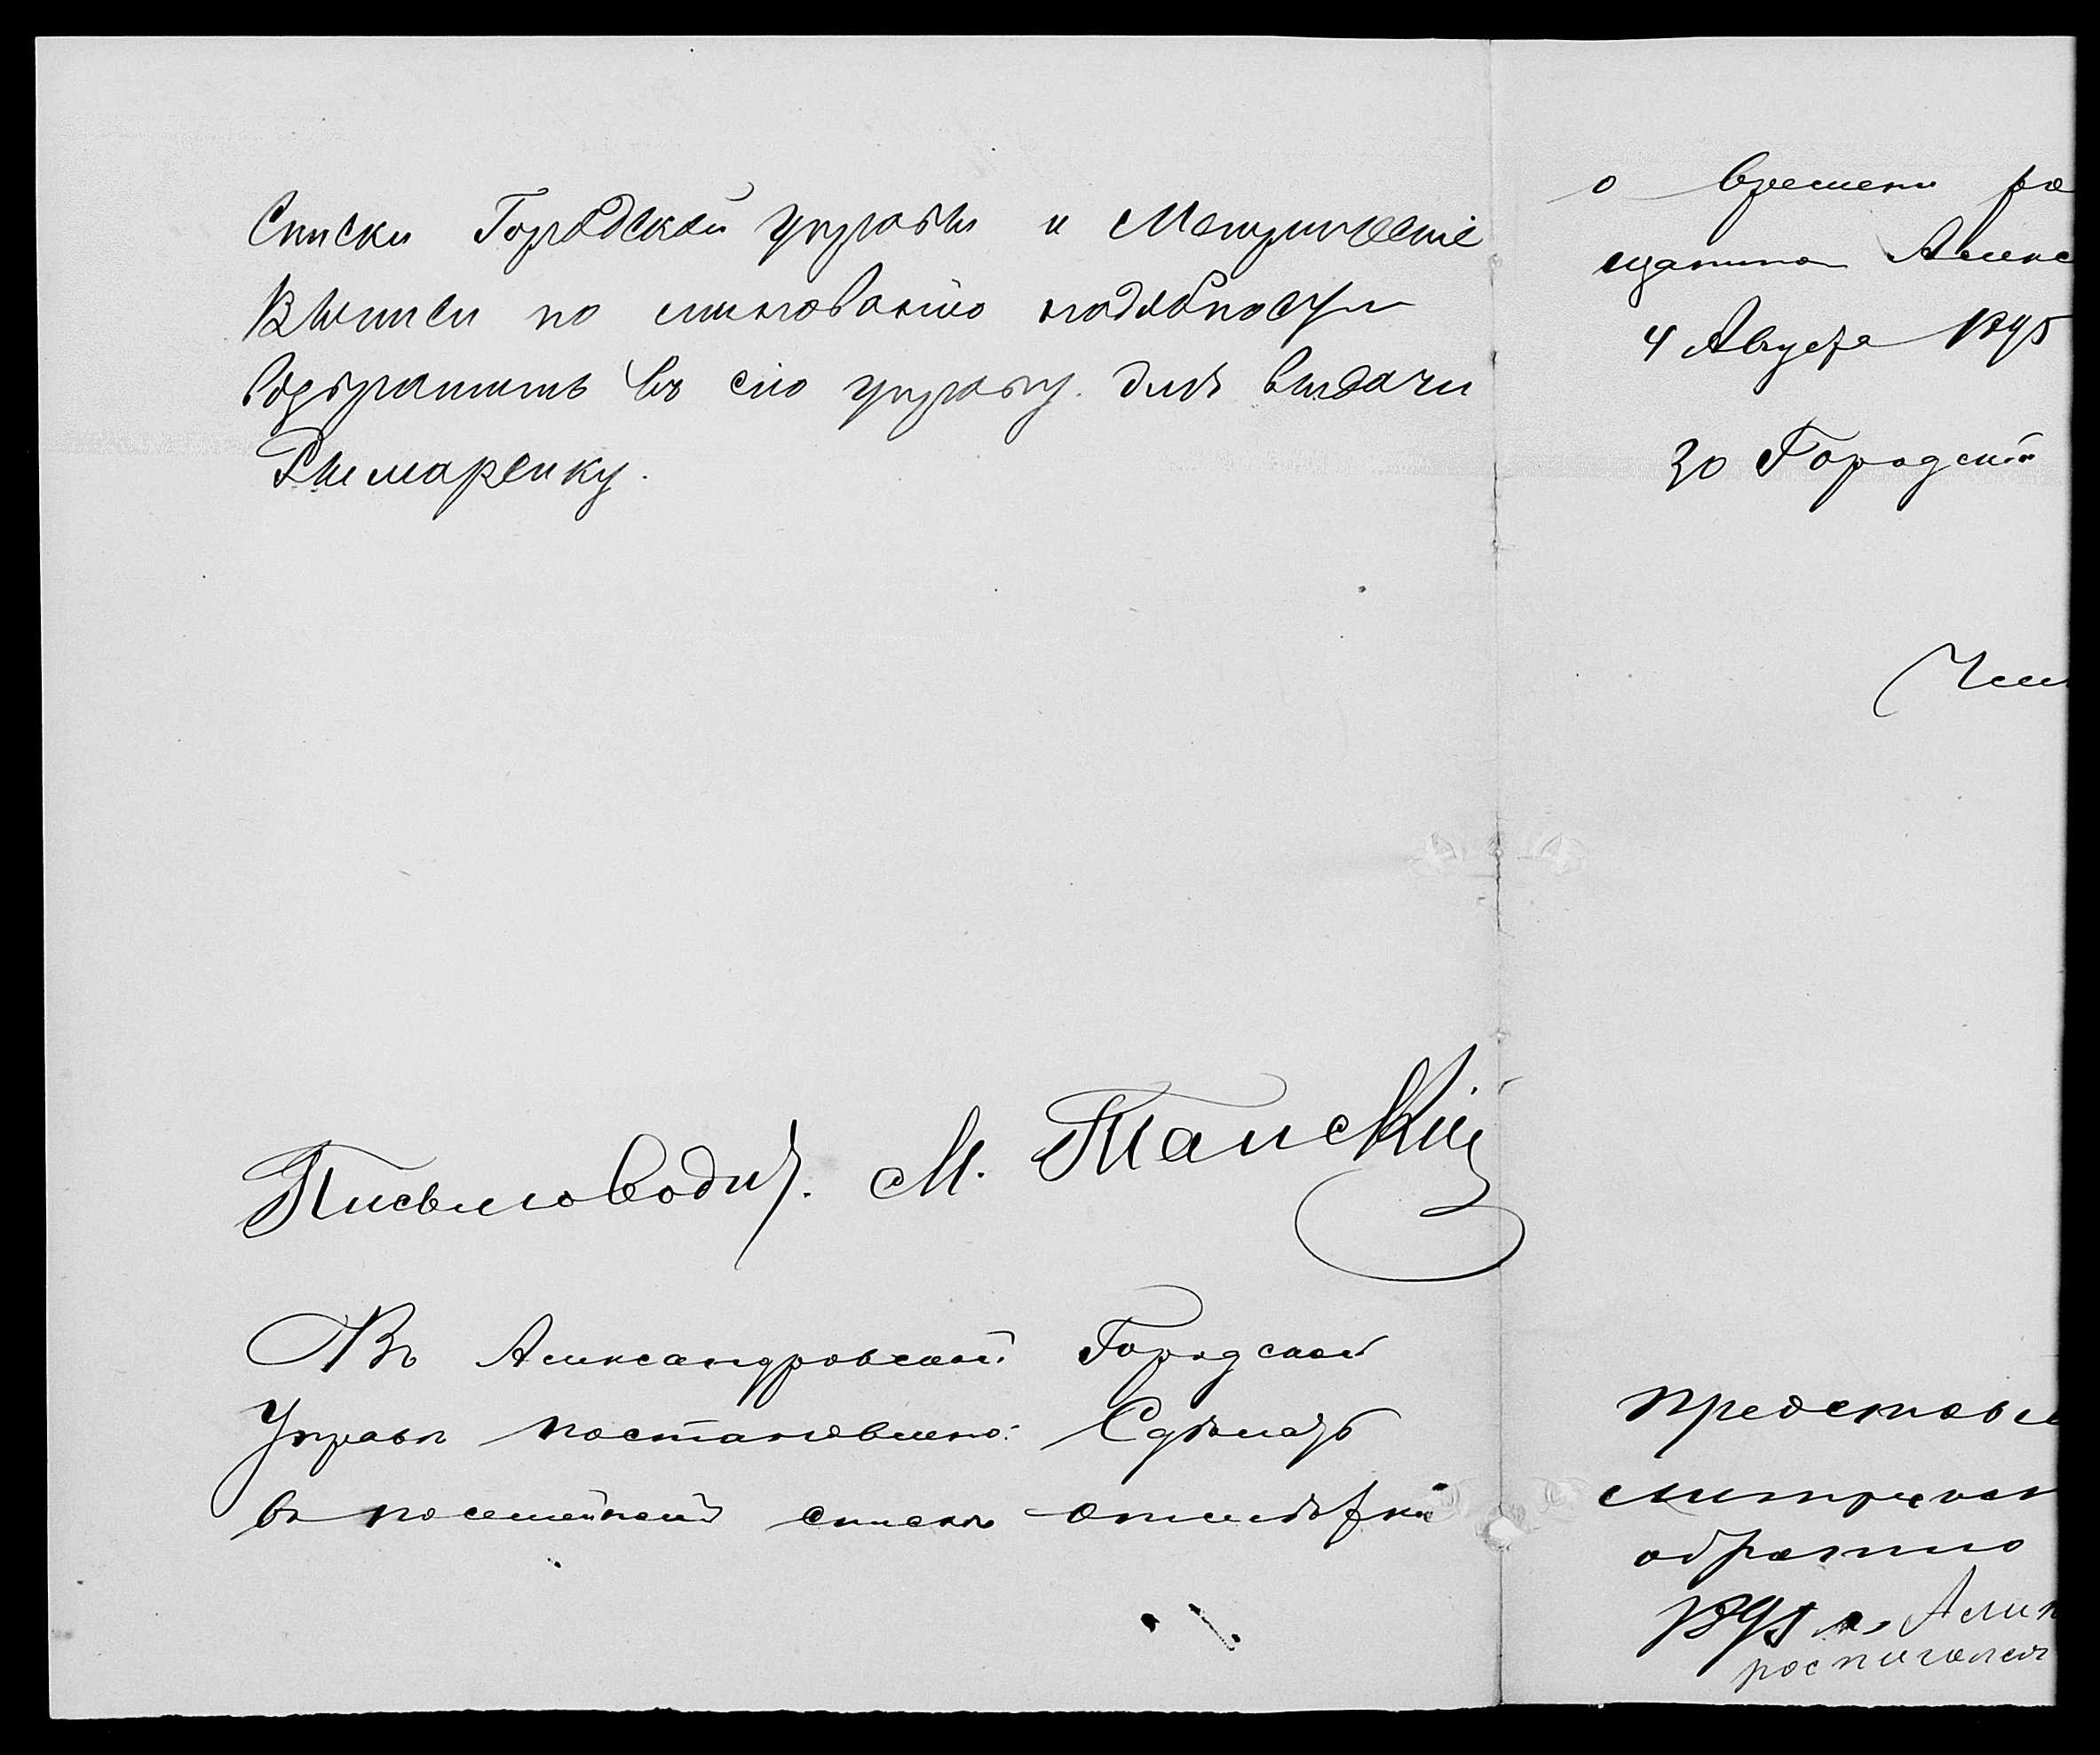 Списки Городской управы и Метрическіе
Выписи по минованію надобности
возвратить въ сію управу для выдачи
Рымаренку.
Письмоводит. М. Танскій
Въ Александровской Городской
Управѣ постановлено: Сдѣлать
въ посемейномъ спискѣ отмѣтки
о времени ро
щанина Алекс
4 Августа 1895
За Городск
представл
метрическ
обратно
1895 г. Алек
росписался